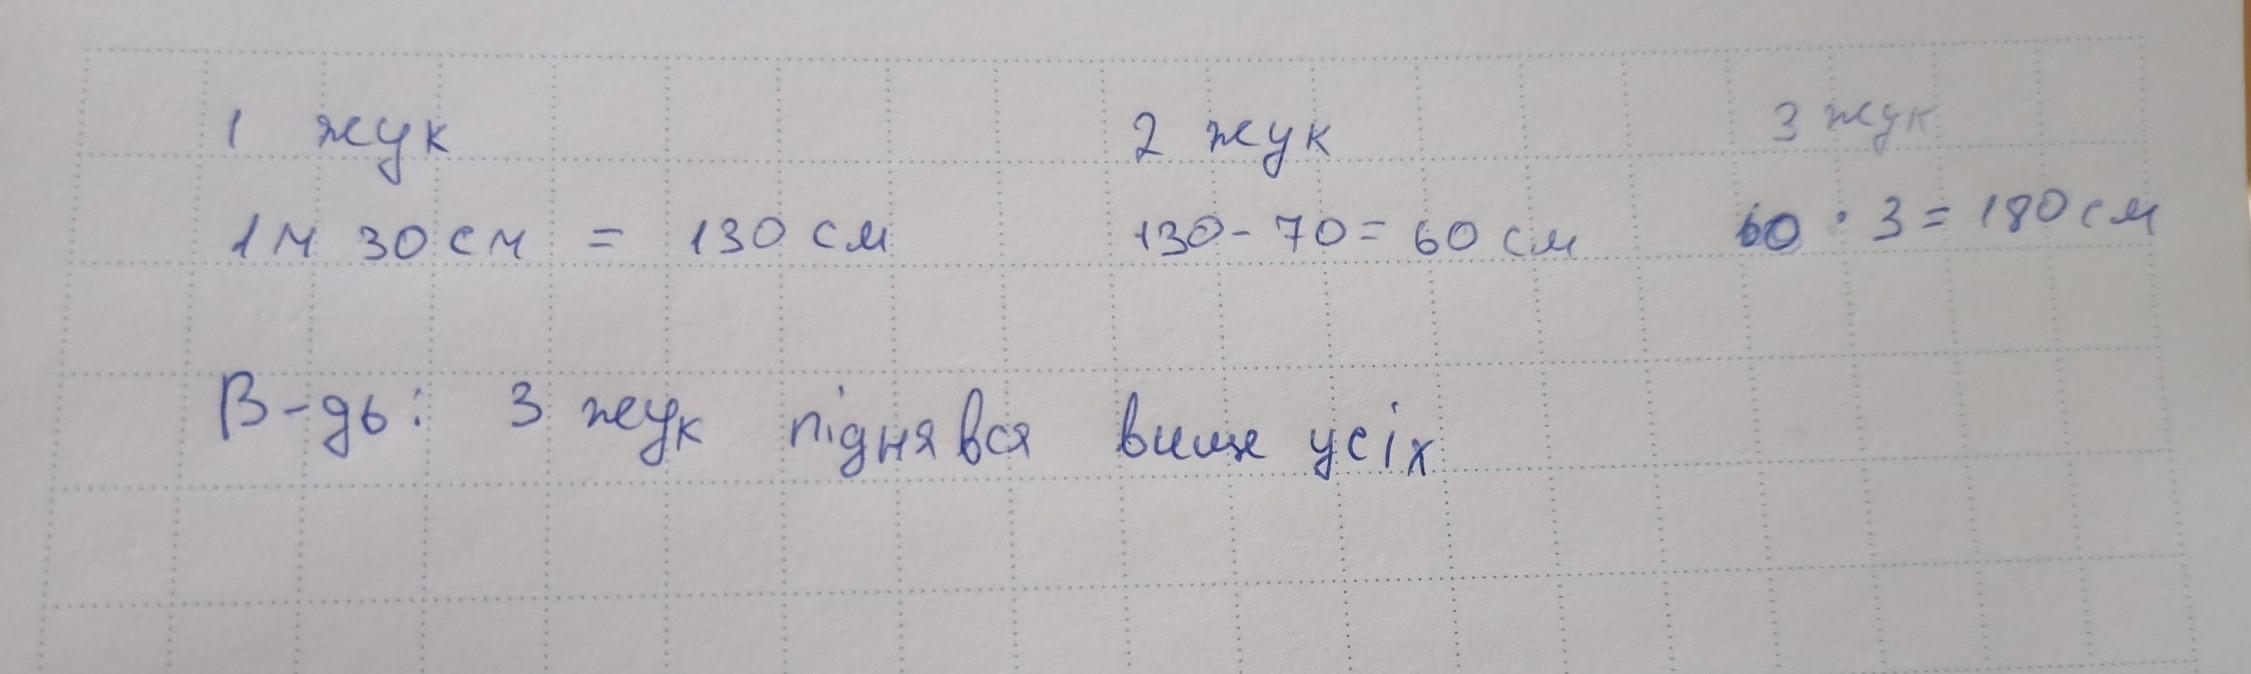 1 жук 2 жук 3 жук
1м 30 см = 130 см 130 - 70 = 60 см 60 · 3 = 180 см
В-дь: 3 жук піднявся вище усіх